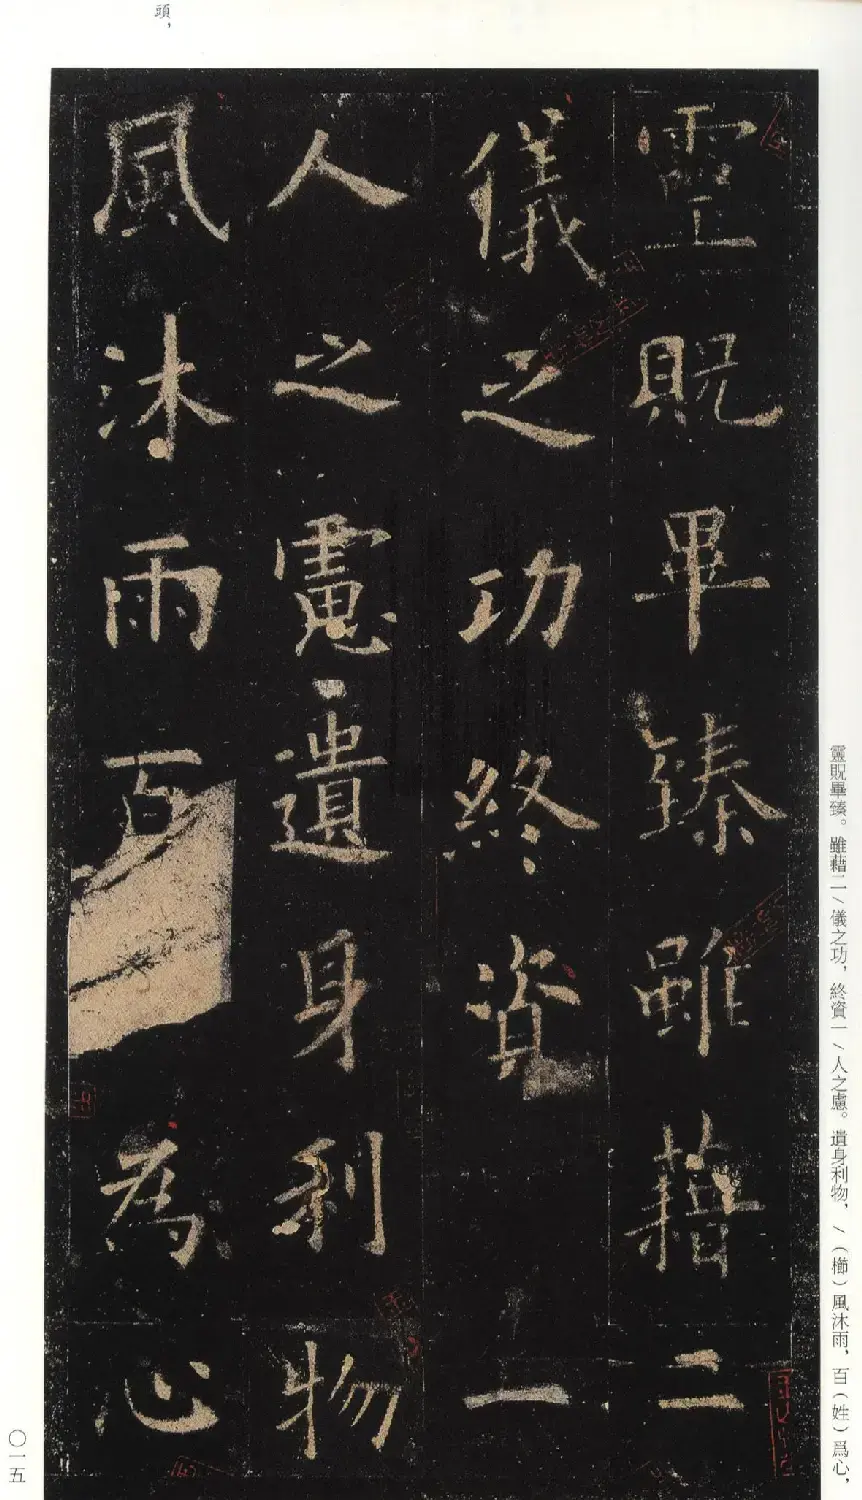 靈貺畢臻雖藉二
儀之功終資一
人之慮遺身利物
風沐雨百為心
靈貺畢臻。雖藉二/儀之功，終資一/人之慮。遺身利物，/（櫛）風沐雨，百（姓）爲心，
頭，
〇一五